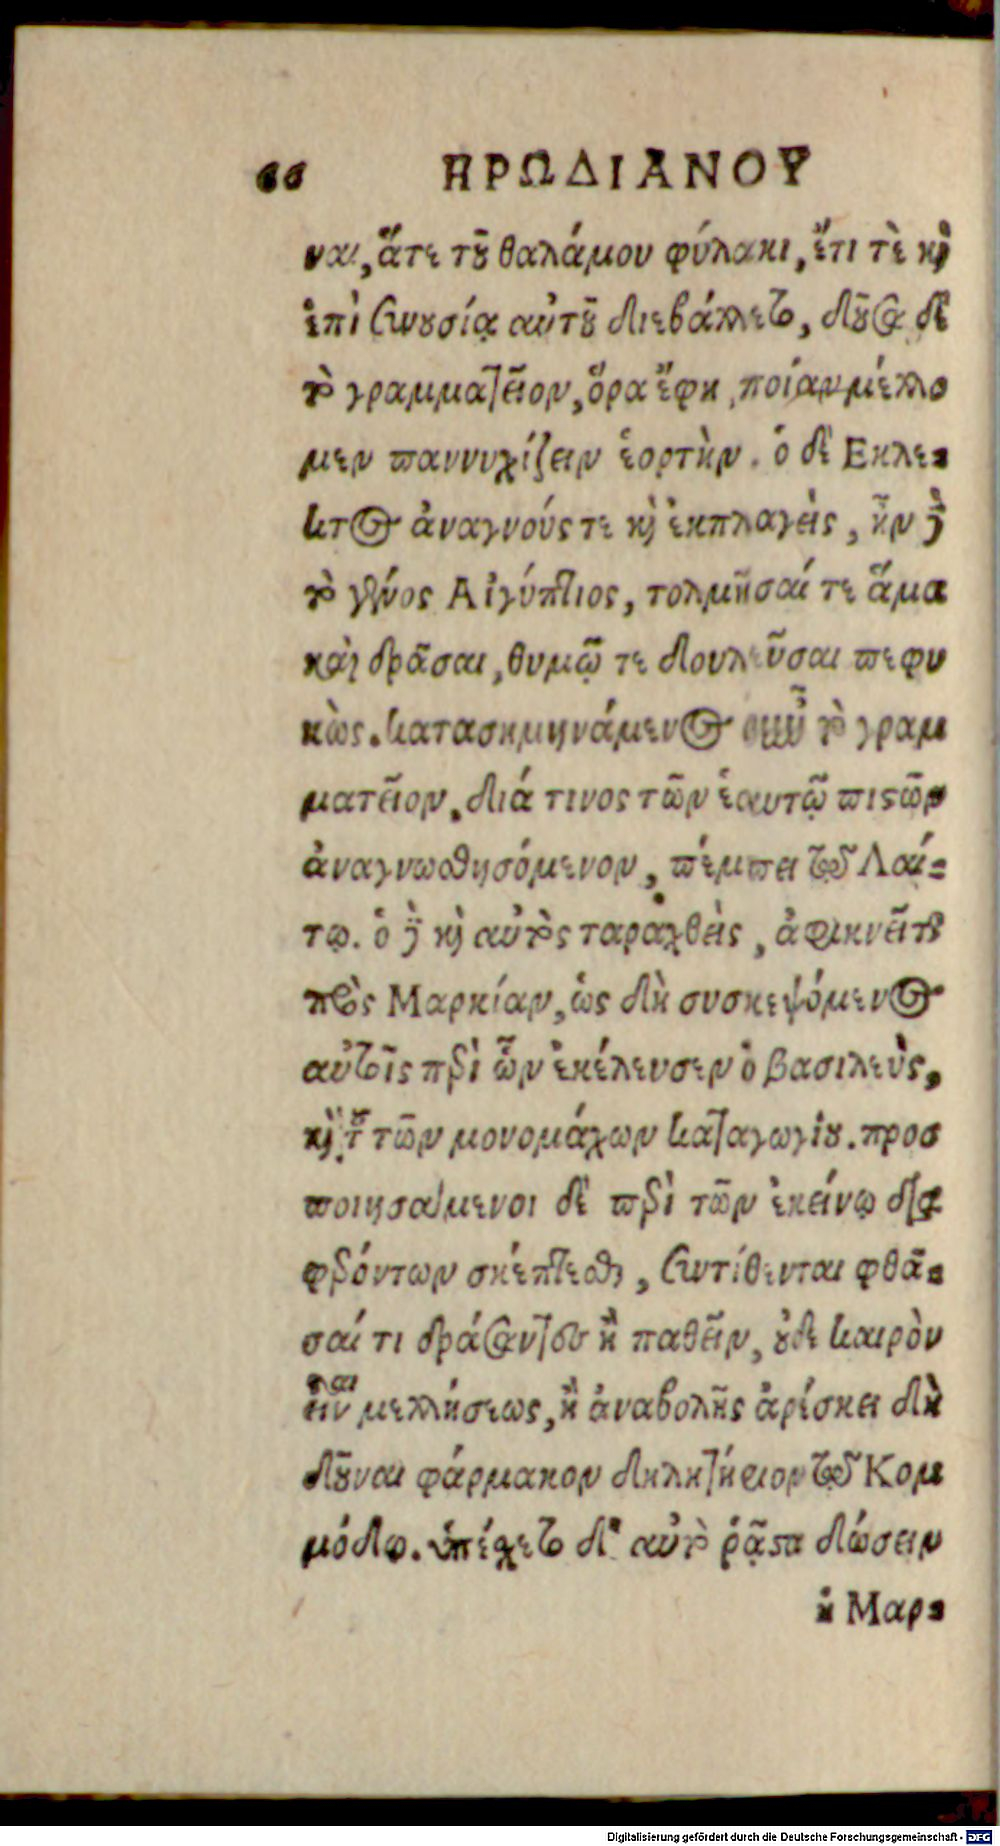 66 ΗΡΩΔΙΑΝΟΥ
ναι, ἅτε τοῦ θαλάμου φύλακι, ἔτι τὲ καὶ
ἐπὶ συνουσίᾳ αὐτοῦ διεβάλλετο, δοῦσα δὲ
τὸ γραμματεῖον, ὅρα ἔφη, ποίαν μέλλο
μεν παννυχίζειν ἑορτήν. ὁ δὲ Εκλε-
κτος ἀναγνούς τε καὶ ἐκπλαγεὶς, ἦν δὲ
τὸ γένος Αἰγύπτιος, τολμῆσαί τε ἅμα
καὶ δρᾶσαι, θυμῷ τε δουλεῦσαι πεφυ
κὼς. κατασημηνάμενος οὖν τὸ γραμ
ματεῖον, διά τινος τῶν ἑαυτῷ πιστῶν
ἀναγνωσθησόμενον, πέμπει τῷ Λαί-
τῳ. ὁ δὲ καὶ αὐτὸς ταραχθεὶς, ἀφικνεῖται
πρὸς Μαρκίαν, ὡς δὴ συσκεψόμενος
αὐτοῖς περὶ ὧν ἐκέλευσεν ὁ βασιλεὺς,
καὶ τοῦ τῶν μονομάχων καταγωγίου. προσ
ποιησάμενοι δὲ περὶ τῶν ἐκείνῳ δια
φερόντων σκέπτεσθαι, συντίθενται φθά-
σαί τι δράσαντες ἢ παθεῖν, οὐδὲ καιρὸν
εἶναι μελλήσεως, ἢ ἀναβολῆς ἀρέσκει δὴ
δοῦναι φάρμακον δηλητήριον τῷ Κομ
μόδῳ. ὑπέχετο δ' αὐτὸ ῥᾷστα δώσειν
ἡ Μαρ-
Digitalisierung gefördert durch die Deutsche Forschungsgemeinschaft - DFG